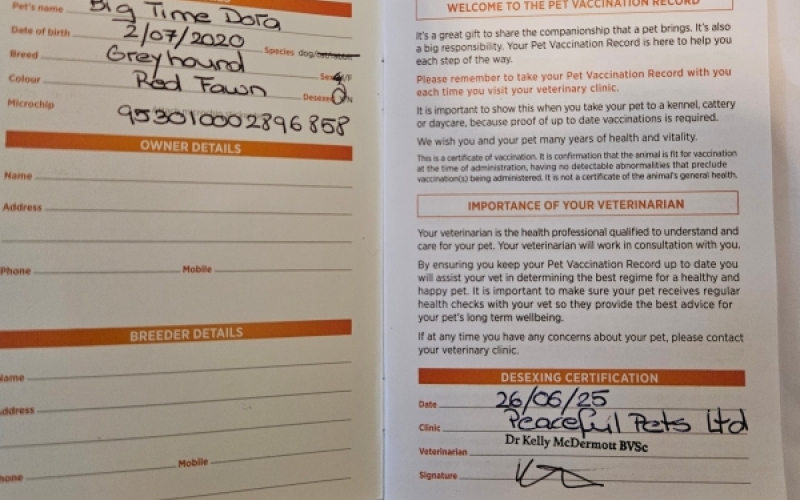 Pet's name Big Time Dora
Date of birth 2/07/2020
Species dog/
Breed Greyhound
Sex M/F
Colour Red Fawn
Desexed Y/N
Microchip 953010002896858
OWNER DETAILS
Name
Address
Phone Mobile
BREEDER DETAILS
Name
Address
Phone Mobile
WELCOME TO THE PET VACCINATION RECORD
It's a great gift to share the companionship that a pet brings. It's also
a big responsibility. Your Pet Vaccination Record is here to help you
each step of the way.
Please remember to take your Pet Vaccination Record with you
each time you visit your veterinary clinic.
It is important to show this when you take your pet to a kennel, cattery
or daycare, because proof of up to date vaccinations is required.
We wish you and your pet many years of health and vitality.
This is a certificate of vaccination. It is confirmation that the animal is fit for vaccination
at the time of administration, having no detectable abnormalities that preclude
vaccination(s) being administered. It is not a certificate of the animal's general health.
IMPORTANCE OF YOUR VETERINARIAN
Your veterinarian is the health professional qualified to understand and
care for your pet. Your veterinarian will work in consultation with you.
By ensuring you keep your Pet Vaccination Record up to date you
will assist your vet in determining the best regime for a healthy and
happy pet. It is important to make sure your pet receives regular
health checks with your vet so they provide the best advice for
your pet's long term wellbeing.
If at any time you have any concerns about your pet, please contact
your veterinary clinic.
DESEXING CERTIFICATION
Date 26/06/25
Clinic Peaceful Pets Ltd
Dr Kelly McDermott BVSc
Veterinarian
Signature